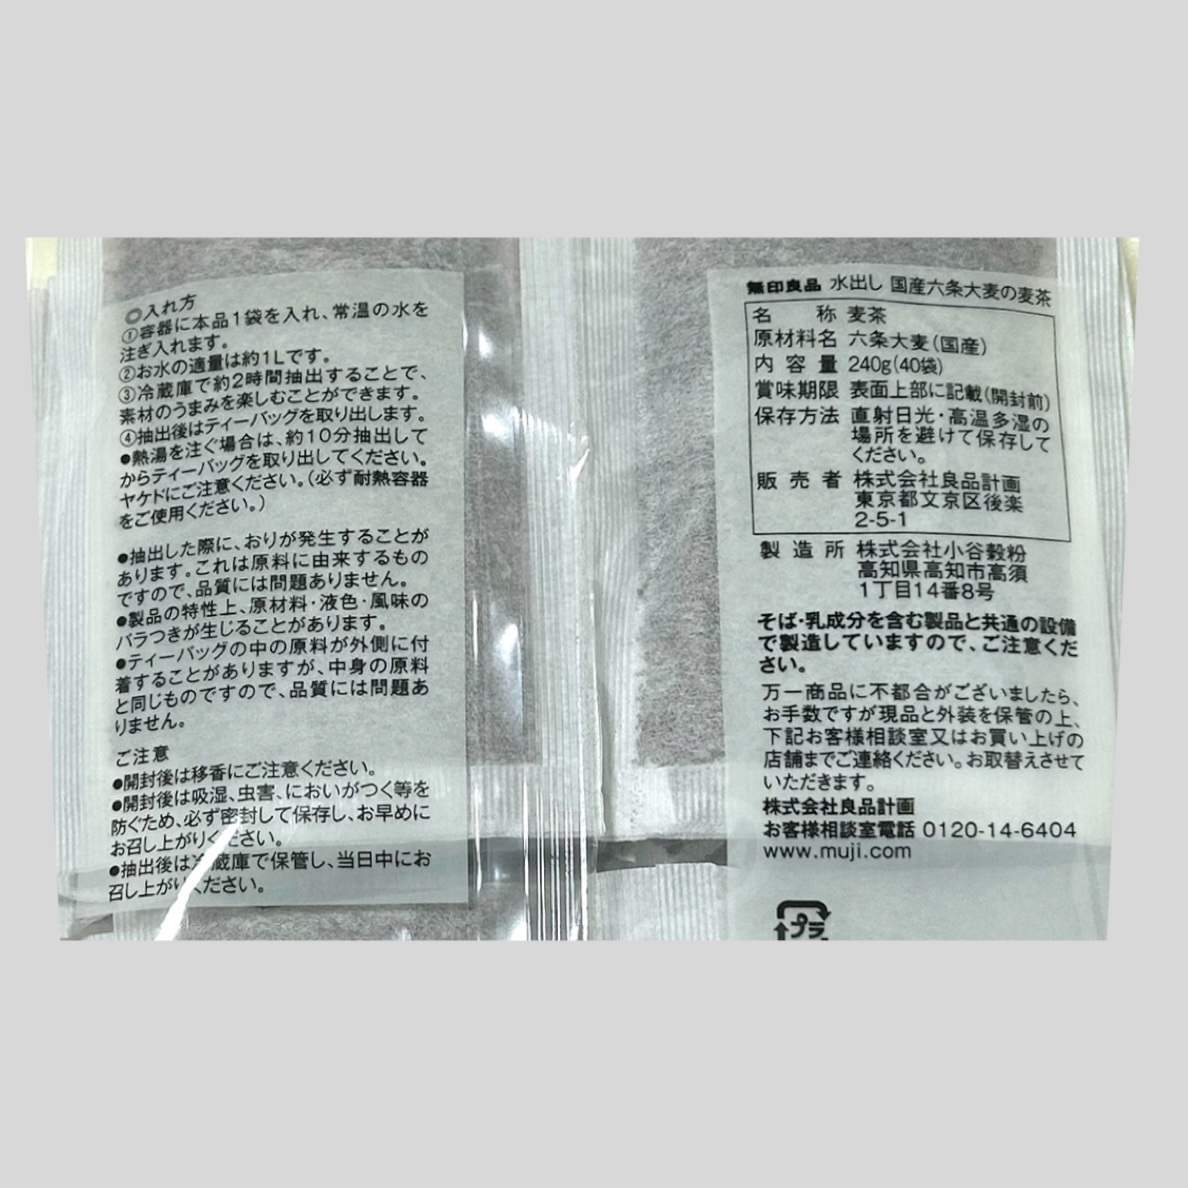 ◎入れ方
①容器に本品1袋を入れ、常温の水を
注ぎ入れます。
②お水の適量は約1Lです。
③冷蔵庫で約2時間抽出することで、
素材のうまみを楽しむことができます。
④抽出後はティーバッグを取り出します。
●熱湯を注ぐ場合は、約10分抽出して
からティーバッグを取り出してください。
ヤケドにご注意ください。(必ず耐熱容器
をご使用ください。)
●抽出した際に、おりが発生することが
あります。これは原料に由来するもの
ですので、品質には問題ありません。
●製品の特性上、原材料・液色・風味の
バラつきが生じることがあります。
●ティーバッグの中の原料が外側に付
着することがありますが、中身の原料
と同じものですので、品質には問題あ
りません。
ご注意
●開封後は移香にご注意ください。
●開封後は吸湿、虫害、においがつく等を
防ぐため、必ず密封して保存し、お早めに
お召し上がりください。
●抽出後は冷蔵庫で保管し、当日中にお
召し上がりください。
無印良品 水出し 国産六条大麦の麦茶
名称 麦茶
原材料名 六条大麦(国産)
内容量 240g(40袋)
賞味期限 表面上部に記載(開封前)
保存方法 直射日光・高温多湿の
場所を避けて保存して
ください。
販売者 株式会社良品計画
東京都文京区後楽
2-5-1
製造所 株式会社小谷穀粉
高知県高知市高須
1丁目14番8号
そば・乳成分を含む製品と共通の設備
で製造していますので、ご注意くだ
さい。
万一商品に不都合がございましたら、
お手数ですが現品と外装を保管の上、
下記お客様相談室又はお買い上げの
店舗までご連絡ください。お取替えさせて
いただきます。
株式会社良品計画
お客様相談室電話 0120-14-6404
www.muji.com
プラ